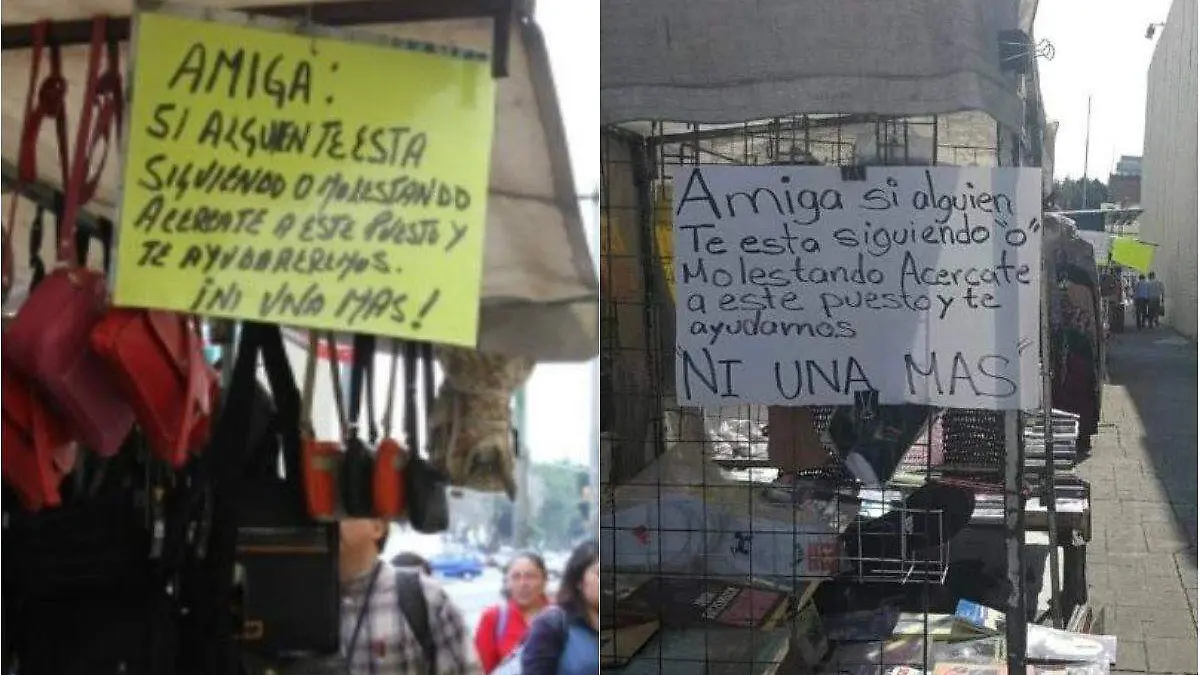 AMIGA:
SI ALGUIEN TE ESTA
SIGUIENDO O MOLESTANDO
ACERCATE A ESTE PUESTO Y
TE AYUDAREREMOS.
¡NI UNA MAS!
Amiga si alguien
Te esta siguiendo "o"
Molestando Acercate
a este puesto y te
ayudamos
"NI UNA MAS"